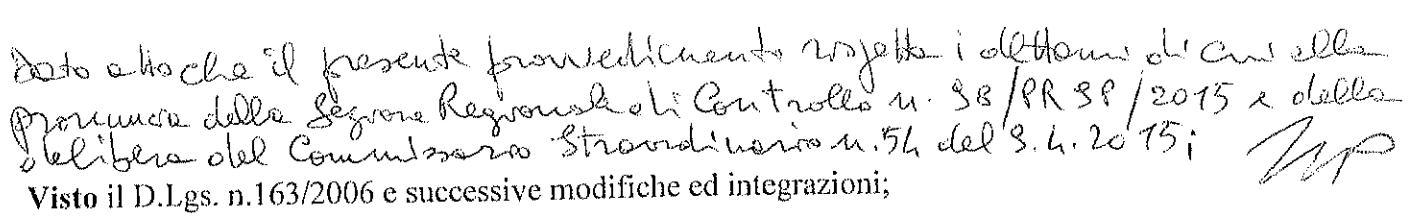 Dato atto che il presente provvedimento rispetta i dettami di cui alla
pronuncia della Sezione Regionale di Controllo n. 98/PRSP/2015 e della
delibera del Commissario Straordinario n. 54 del 9.4.2015;
Visto il D.Lgs. n.163/2006 e successive modifiche ed integrazioni;